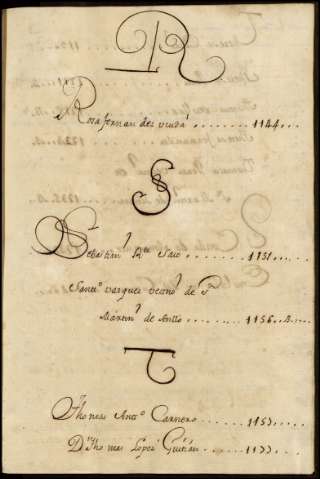 R
Rosa fernandes viuda ........ 1144...
S
Sebastian ........ 1151....
Santo. vazquez vecno. de Sn.
Martin de ........ 1156...
T
Thomas Anto. Carnero ........ 1153....
Dn. Thomas Lopez Guitian ...... 1177....